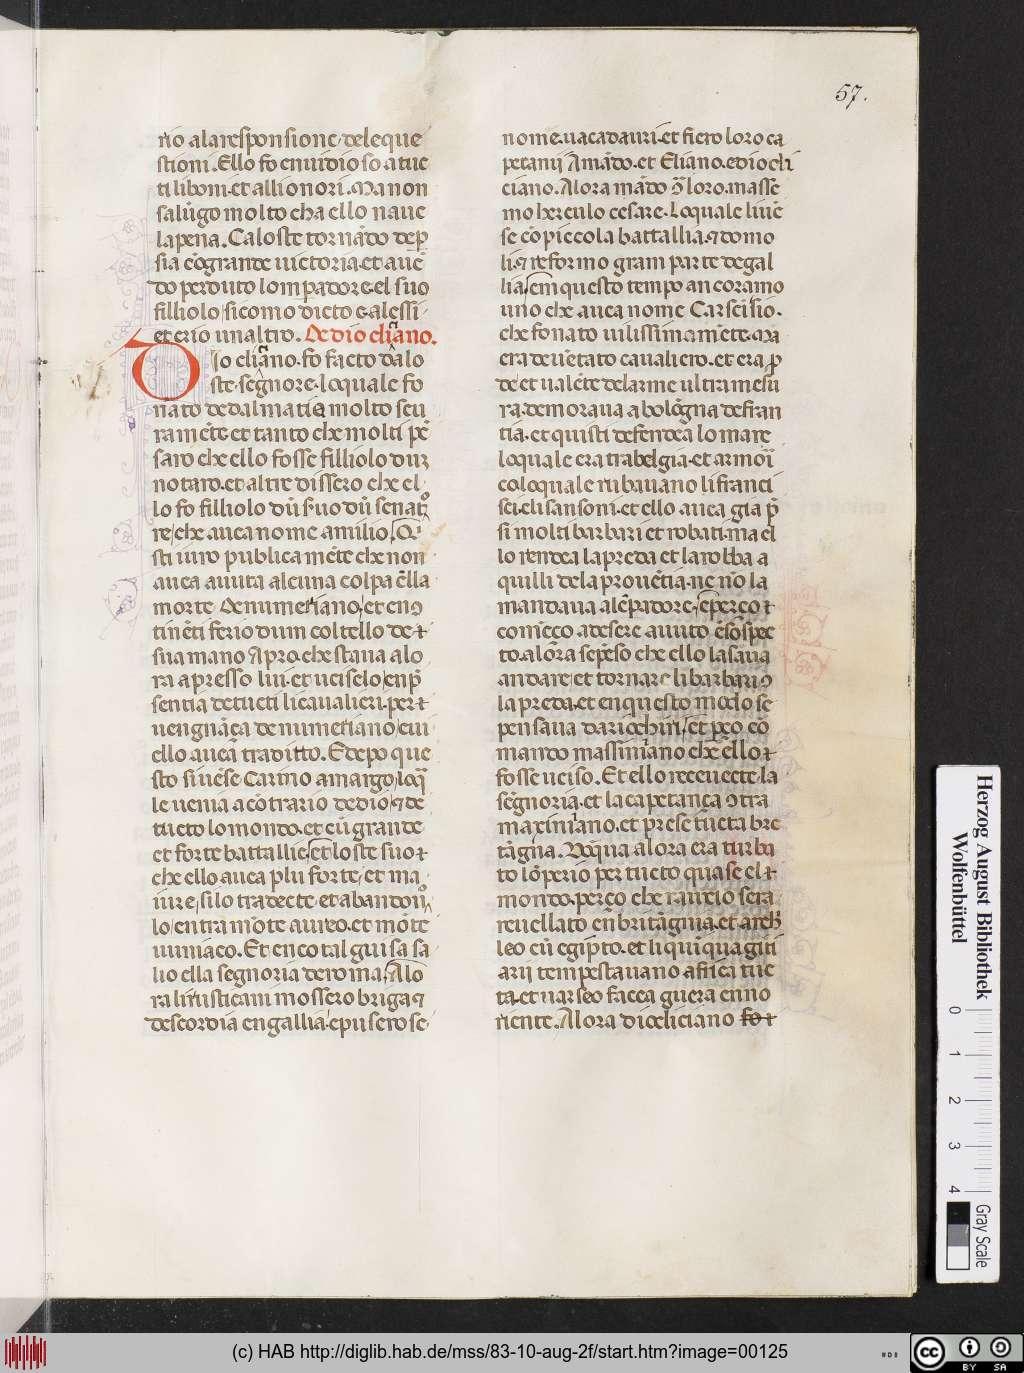 57.
rio ala responsione, dele que
stioni. Ello fo enuidioso a tuc
ti li boni. et alli onori. Ma non
salūgo molto cha ello naue
la pena. Ca loste tornādo de p̄
sia cō grande uictoria. et auē
do perduto lomp̄adore. el suo
filliolo sicomo dicto e. alessi
et erio un altro. De dio cliāno.
Dio cliāno. fo facto da lo
ste. segnore. loquale fo
nato de dalmatia molto scu
ra mēte et tanto che molti pē
saro che ello fosse filliolo dūz
notaro. et altre dissero che el
lo fo filliolo dū suo dū senat
re, che auea nome amilio, Q
sti iuro publica mēte che non
auea auuta alcuna colpa ē lla
morte De numeriano, et en ꝯ
tinēti ferio dum coltello de
sua mano Apro. che staua alo
ra apresso lui. et uciselo, en p̄
sentia de tucti li caualieri. per
uengnāça de numeriano, cui
ello aueā traditto. E depo que
sto si uēse Carino amargo, loq̄
le uenia a cōtrario de dio, ⁊ de
tucto lo mondo. et cū grande
et forte battallie, et loste suo
che ello auea plu forte, et ma
iure, si lo tradecte et abandon
lo entra mōte aureo. et mōte
uimiaco. Et en cotal guisa sa
lio ella segnoria de roma. Alo
ra li rusticani mossero briga ⁊
descordia en gallia, e puserose
nome. uacadauri. et fiero loro ca
petanij Amādo. et Eliano. e diocli
ciano. Alora mādo ꝯ loro. massē
mo herculo cesare. loquale liuē
se cō piccola battallia. ⁊ domo
li. ⁊ reformo gram parte de gal
lia, em questo tempo ancoramo
uno che auea nome Carsēisio.
che fo nato uilissimamēte. Ma
era deuētato caualiero. et era p̄
de. et ualēte de larme ultra mesu
ra. demoraua a bologna de fran
tia. et quisti defendea lo mare
loquale era tra belgia. et armoī
co. loquale rubauano li franci
sci. eli sansoni. et ello auea gia p̄
si molti barbari et robati. ma el
lo rendea la preda et la robba a
quilli de la prouētia. ne nō la
mandaua alēpadore, e perço
comēço adesere auuto ē sospec
to. alora se pēso che ello lasaua
andare et tornare li barbari ꝯ
la preda. et en questo modo se
pensaua darichiri, et p̄ço cō
mando massimiano che ello
fosse uciso. Et ello receuecte la
segnoria. et la capetança ꝯtra
maximiano. et prese tucta bre
tāgna. Vnqua alora era turba
to lōperio per tucto quase el
mondo. perço che rauelo sera
reuellato en britāgnia. et arch
leo cū egipto. et li quiquagiti
arij tempestauano africa tuc
ta. et uarseo facea guera en no
riente. Alora diocliciano fo
Herzog August Bibliothek
Wolfenbüttel
0 1 2 3 4
Gray Scale
(c) HAB http://diglib.hab.de/mss/83-10-aug-2f/start.htm?image=00125
HAB
cc BY SA